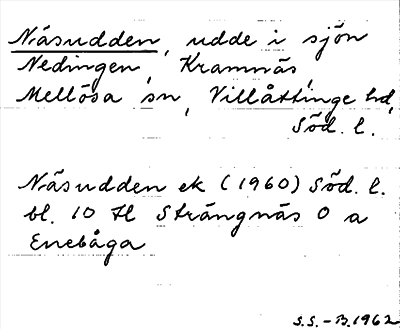 Näsudden, udde i sjön
Nedingen, Kramnäs,
Mellösa sn, Villåttinge hd,
Söd. l.
Näsudden ek (1960) Söd. l.
bl. 10 Hl Strängnäs O a
Enebåga
S.S. - B. 1962